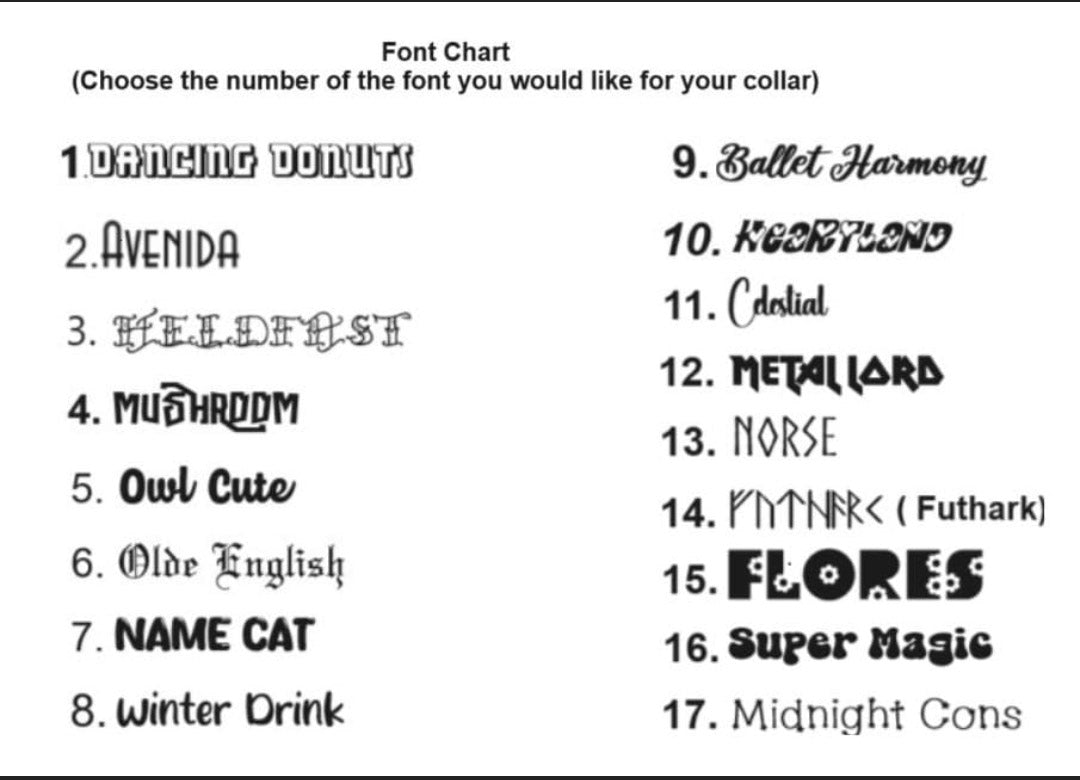 Font Chart
(Choose the number of the font you would like for your collar)
1.DANCING DONUTS
2.AVENIDA
3. HELLDEFAST
4. MUSHROOM
5. Owl Cute
6. Olde English
7. NAME CAT
8. Winter Drink
9. Ballet Harmony
10. HEARTLAND
11. Celestial
12. METAL LORD
13. NORSE
14. FUTHARK ( Futhark)
15. FLORES
16. Super Magic
17. Midnight Cons